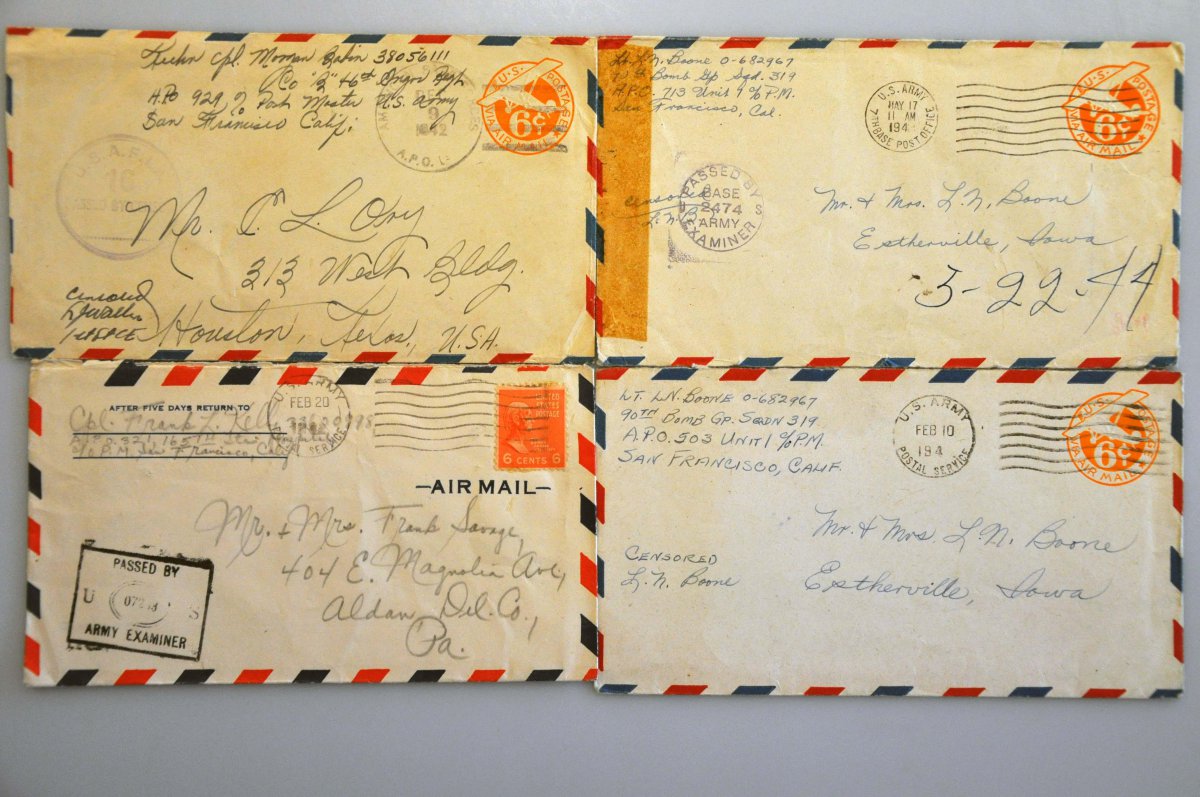 Cpl. Moman 38056111
Co "2" 46th Engrs Regt
A.P.O 929 % Post Master U.S. Army
San Francisco Calif.
9
1942
A.P.O.
U.S. POSTAGE
6¢
VIA AIR MAIL
Mr. C. L. Ory
313 West Bldg.
Houston, Texas, U.S.A.
Censored
Lt. L.N. Boone O-682967
90th Bomb Gp Sqd. 319
A.P.O. 713 Unit 1 % P.M.
San Francisco, Cal.
U.S. ARMY
MAY 17
11 AM
194
7TH BASE POST OFFICE
U.S. POSTAGE
6¢
VIA AIR MAIL
PASSED BY
BASE
2474
ARMY
EXAMINER
Censored
L.N. B
Mr. & Mrs. L.N. Boone
Estherville, Iowa
3-22-44
AFTER FIVE DAYS RETURN TO
Cpl. Frank L.
A.P.O. 321, 165TH
% P.M. San Francisco, Calif
U.S. ARMY
FEB 20
UNITED STATES POSTAGE
6 CENTS 6
AIR MAIL
Mr. & Mrs. Frank Savage,
404 E. Magnolia Ave,
Aldan Del. Co.,
Pa.
PASSED BY
U S
ARMY EXAMINER
LT. L.N. BOONE O-682967
90TH BOMB GP. SQDN 319
A.P.O. 503 UNIT 1 % P.M.
SAN FRANCISCO, CALIF.
U.S. ARMY
FEB 10
194
POSTAL SERVICE
U.S. POSTAGE
6¢
VIA AIR MAIL
Mr. & Mrs L.N. Boone
Estherville, Iowa
CENSORED
L.N. Boone